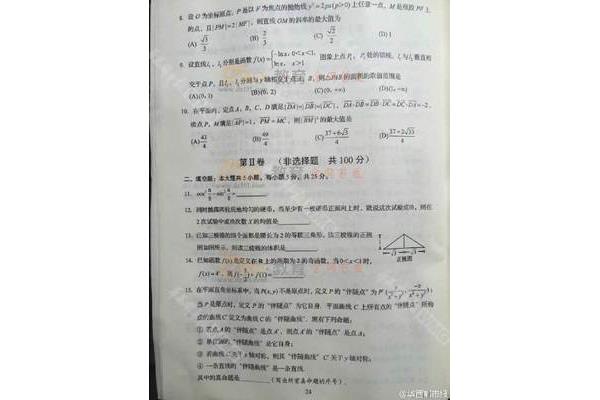 8. 设O为坐标原点，P是以F为焦点的抛物线y²=2px(p>0)上任意一点，M是线段PF上
的点，且|PM|=2|MF|，则直线OM的斜率的最大值为
(A) √3/3 (B) 2/3 (C) √2/2 (D) 1
9. 设直线l₁，l₂分别是函数f(x)={-lnx, 0<x<1, lnx, x>1, 图象上点P₁，P₂处的切线，l₁与l₂垂直相
交于点P，且l₁，l₂分别与y轴相交于点A，B，则△PAB的面积的取值范围是
(A)(0, 1) (B)(0, 2) (C)(0, +∞) (D)(1, +∞)
10. 在平面内，定点A，B，C，D满足|DA|=|DB|=|DC|，DA·DB=DB·DC=DC·DA=-2，
动点P，M满足|AP|=1，PM=MC，则|BM|²的最大值是
(A) 43/4 (B) 49/4 (C) (37+6√3)/4 (D) (37+2√33)/4
第Ⅱ卷 （非选择题 共100分）
二、填空题：本大题共5小题，每小题5分，共25分。
11. cos²π/8-sin²π/8=
12. 同时抛掷两枚质地均匀的硬币，当至少有一枚硬币正面向上时，就说这次试验成功，则在
2次试验中成功次数X的均值是
13. 已知三棱锥的四个面都是腰长为2的等腰三角形，该三棱锥的正视
图如图所示，则该三棱锥的体积是
正视图
14. 已知函数f(x)是定义在R上的周期为2的奇函数，当0<x<1时，
f(x)=4ˣ，则f(-5/2)+f(1)=
15. 在平面直角坐标系中，当P(x, y)不是原点时，定义P的“伴随点”为P′(y/(x²+y²), -x/(x²+y²))
当P是原点时，定义P的“伴随点”为它自身，平面曲线C上所有点的“伴随点”所构
成的曲线C′定义为曲线C的“伴随曲线”．现有下列命题：
① 若点A的“伴随点”是点A′，则点A′的“伴随点”是点A；
② 单位圆的“伴随曲线”是它自身；
③ 若曲线C关于x轴对称，则其“伴随曲线”C′关于y轴对称；
④ 一条直线的“伴随曲线”是一条直线．
其中的真命题是 （写出所有真命题的序号）．
24
@华西都市报